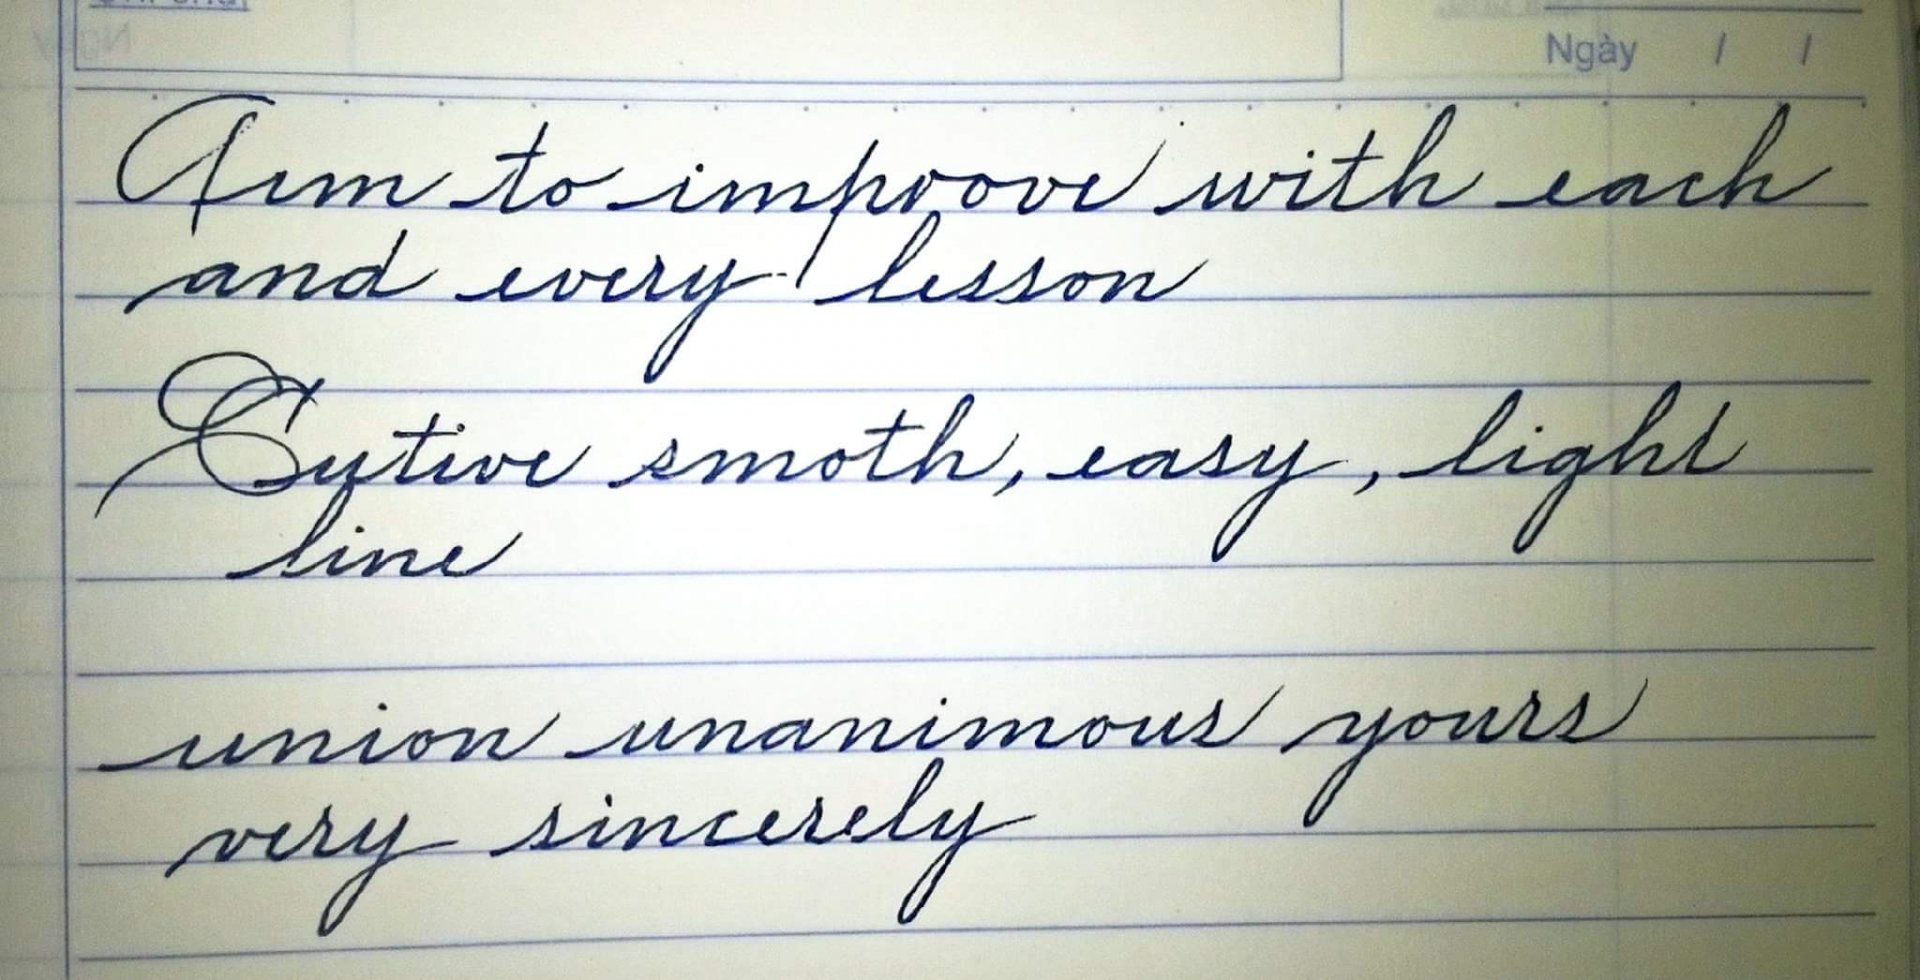 Ngày / /
Aim to improve with each
and every lesson
smoth, easy, light
line
union unanimous yours
very sincerely